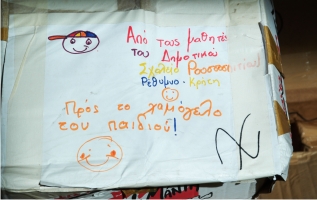 Από τους μαθητές
του Δημοτικού
Σχολείο
Ρέθυμνο - Κρήτη
Πρός το χαμόγελο
του παιδιού!